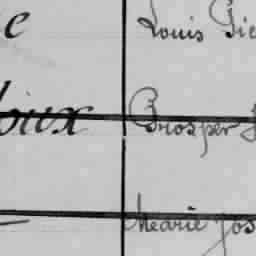 e Louis Pie
oux Prosper J
Marie Jos